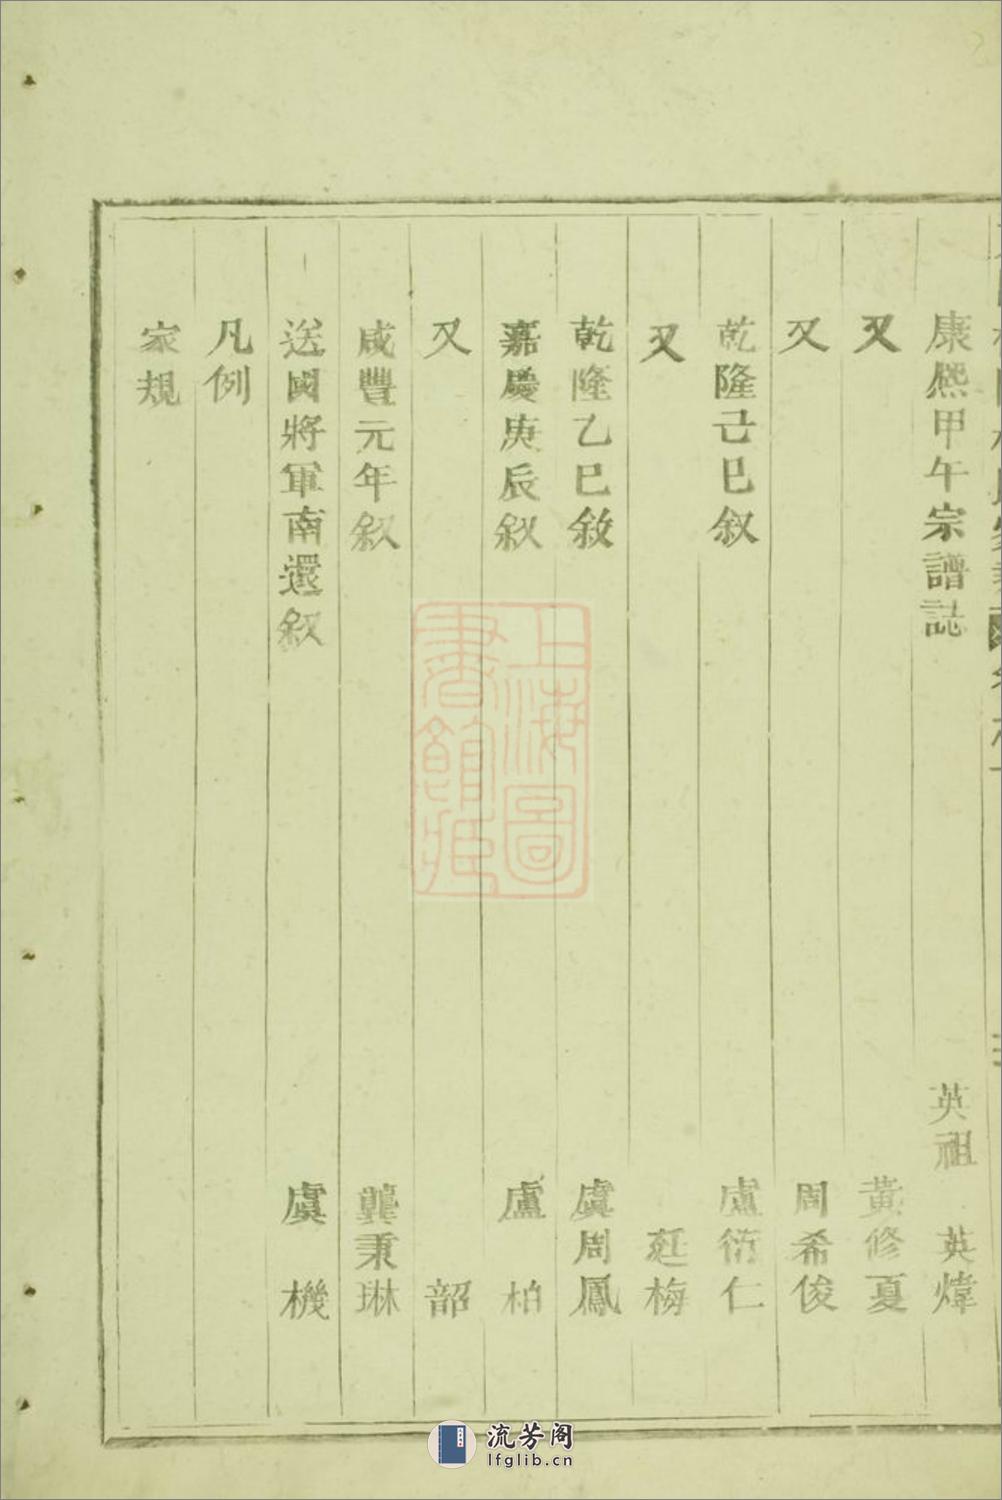 康熙甲午宗譜誌 英祖 英煒
又 黃修夏
又 周希俊
乾隆己巳叙 盧衍仁
又 廷梅
乾隆乙巳敘 虞周鳳
嘉慶庚辰叙 盧柏
又 韶
咸豐元年叙 龔秉琳
送國將軍南還叙 虞機
凡例
家規
上海圖書館藏
流芳阁
lfglib.cn